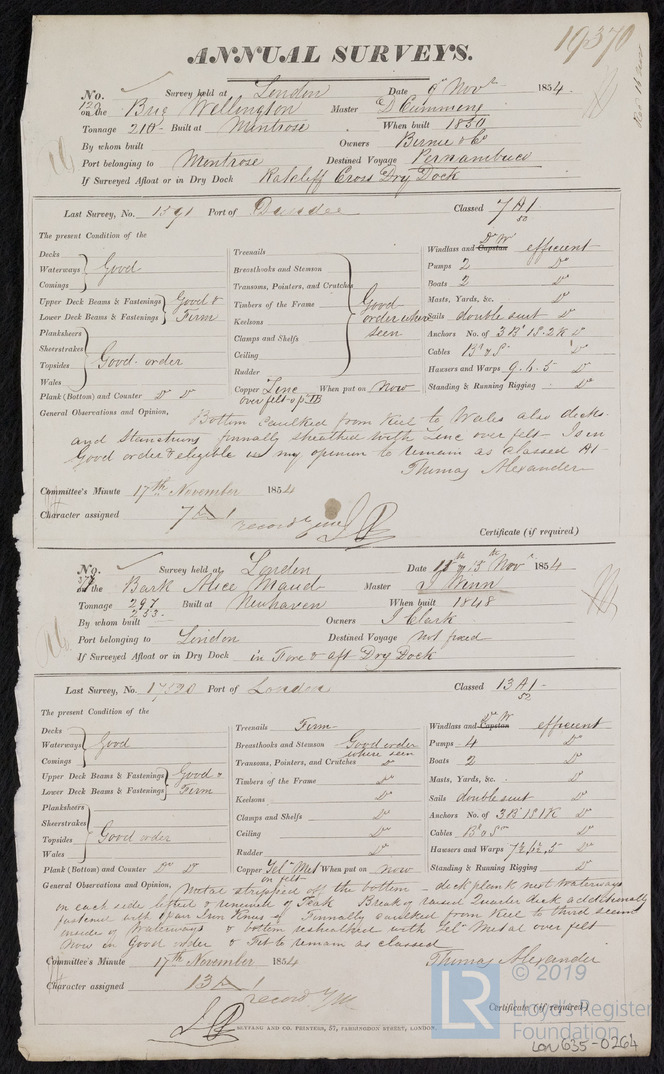 19370
ANNUAL SURVEYS.
No. Survey held at London Date 9th Novr 1854.
120 on the Brig Wellington Master D Cummins
Tonnage 210 Built at Montrose When built 1850
By whom built Owners Birnie & Co
Port belonging to Montrose Destined Voyage Pernambuco
If Surveyed Afloat or in Dry Dock Ratcliff Cross Dry Dock
Last Survey, No. 1391 Port of Dundee Classed 7 A1
50
The present Condition of the
Decks
Waterways Good
Comings
Upper Deck Beams & Fastenings Good &
Lower Deck Beams & Fastenings Firm
Planksheers
Sheerstrakes
Topsides Good order
Wales
Plank (Bottom) and Counter Do Do
Treenails
Breasthooks and Stemson
Transoms, Pointers, and Crutches
Timbers of the Frame Good
Keelsons order where
Clamps and Shelfs seen
Ceiling
Rudder
Copper Zinc When put on Now
over felt
Windlass and Capstan Do W efficient
Pumps 2 Do
Boats 2 Do
Masts, Yards, &c. Do
Sails double suit Do
Anchors No. of 3 B 1 S. 2 K Do
Cables Do
Hawsers and Warps 9. 6. 5 Do
Standing & Running Rigging Do
General Observations and Opinion, Bottom caulked from Keel to Wales also decks
and Stanctions finnally sheathed with Zinc over felt Is in
Good order & elegible in my opinion to remain as classed A1
Thomas Alexander
Committee's Minute 17th November 1854
Character assigned 7 A 1
record
Certificate (if required)
No. Survey held at London Date 15 Novr 1854
on the Bark Alice Maud Master J Wenn
Tonnage 297 Built at Newhaven When built 1848
253
By whom built Owners J Clark
Port belonging to London Destined Voyage Not fixed
If Surveyed Afloat or in Dry Dock in Fore & aft Dry Dock
Last Survey, No. 17120 Port of London Classed 13 A1
52
The present Condition of the
Decks
Waterways Good
Comings
Upper Deck Beams & Fastenings Good &
Lower Deck Beams & Fastenings Firm
Planksheers
Sheerstrakes
Topsides Good order
Wales
Plank (Bottom) and Counter Do Do
Treenails Firm
Breasthooks and Stemson Good order
where seen
Transoms, Pointers, and Crutches Do
Timbers of the Frame Do
Keelsons Do
Clamps and Shelfs Do
Ceiling Do
Rudder Do
Copper Yel Met When put on now
on felt
Windlass and Capstan Do W efficient
Pumps 4 Do
Boats 2 Do
Masts, Yards, &c. Do
Sails double suit Do
Anchors No. of 3 B 1 S 1 K Do
Cables Do
Hawsers and Warps Do
Standing & Running Rigging Do
General Observations and Opinion, Metal stripped off the bottom - deck plank next waterways
on each side lifted & renewed of Teak Break of raised Quarter deck additionally
fastened with 1 pair Iron Knees & Finnally caulked from Keel to third seam
inside of Waterways & bottom resheathed with Yel Metal over felt
Now in Good order & Fit to remain as classed
Thomas Alexander
Committee's Minute 17th November 1854
Character assigned 13 A 1
record Y/M
Certificate (if required)
SEYFANG AND CO. PRINTERS, 57, FARRINGDON STREET, LONDON.
LR © 2019
Lloyd's Register
Foundation
LON635-0264